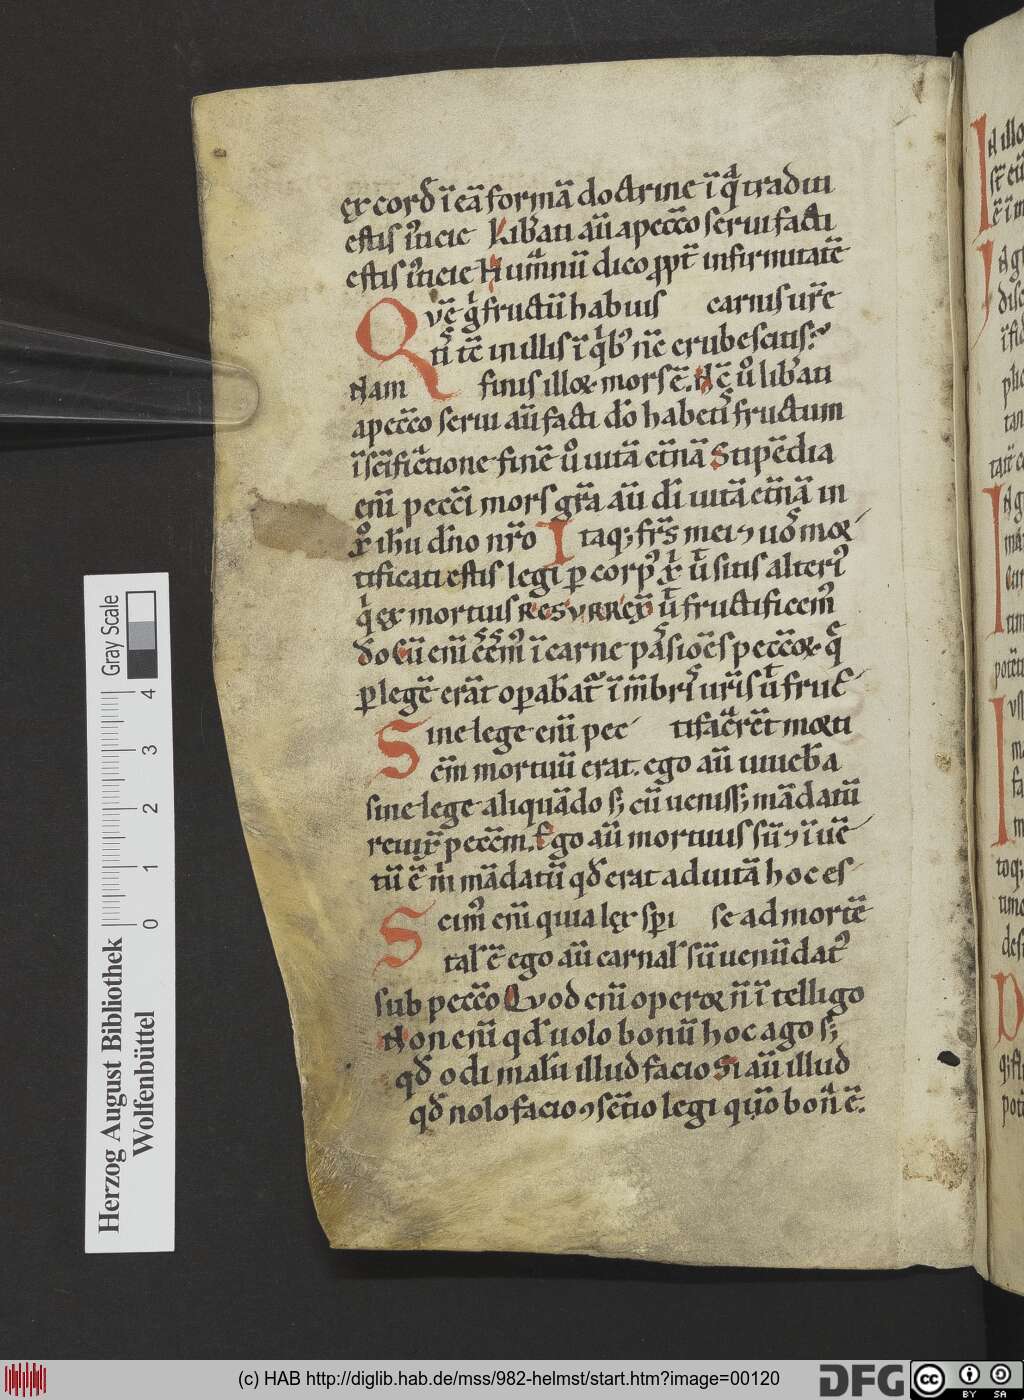 ex cord̄ ī eā formā doctrine ī q̄ traditi
estis iꝰticie Lib̄ati aū a pecc̄o serui facti
estis iꝰticie Humanū dico ꝓpt̄ infirmitatē
Quē g̊ fructū habuis carnis ur̄e
ti tē in illis ī qⁱbꝰ nc̄ erubescitis?
Nam finis illoꝝ mors ē. Nc̄ ů lib̄ati
a pecc̄o serui aū facti dō habetꝭ fructum
ī sc̄ificatione finē ů uitā et̄nā Stipēdia
eni᷒ pecc̄i mors gr̄a aū di᷒ uitā et̄nā in
xp̊ ih̄u dn̄o nr̄o Itaq; fr̄s mei ⁊ uos moꝛ
tificati estis legi ꝑ corpꝰ xⁱ ut̄ sitis alteriꝰ
qⁱ ex mortuis Resurrex̄ ut̄ fructificemꝰ
dō Cū eni᷒ eēmꝰ ī carne passiōes pecc̄oꝝ q̄
ꝑ legē erāt oꝑab̄at᷒ ī mēbris ur̄is ut̄ fruc
Sine lege eni᷒ pec tifacerēt moꝛti
cm̄ mortuū erat. ego aū uiueb̄a
sine lege aliquādo s; cū ueniss; mādatū
reuix̄ pecc̄m. Ego aū mortuus sū ⁊ īuē
tū ē mⁱ mādatū qd̄ erat ad uitā hoc es
Scimꝰ eni᷒ quia lex sp̄i se ad mortē
tal̄ ē ego aū carnal̄ sū uenūdatꝰ
sub pecc̄o Quod eni᷒ operoꝛ n̄ ītelligo
Non eni᷒ qd̄ uolo bonū hoc ago s;
qd̄ odi malū illud facio Si aū illud
qd̄ nolo facio ⁊sētio legi qūo bona ē.
Herzog August Bibliothek
Wolfenbüttel
Gray Scale
0 1 2 3 4
(c) HAB http://diglib.hab.de/mss/982-helmst/start.htm?image=00120
DFG
cc BY SA